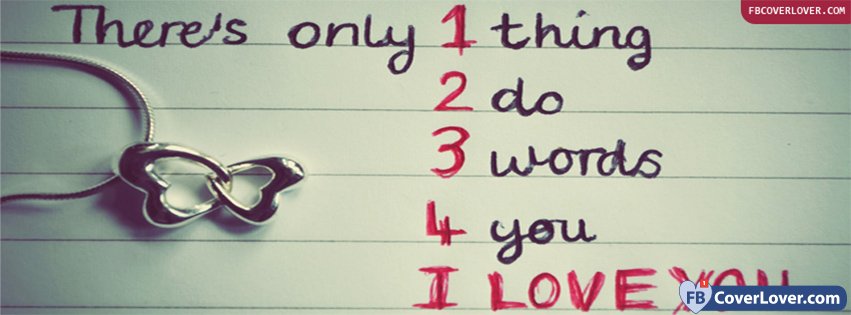 FBCOVERLOVER.COM
There's only 1 thing
2 do
3 words
4 you
I LOVE YOU
FB 1 CoverLover.com